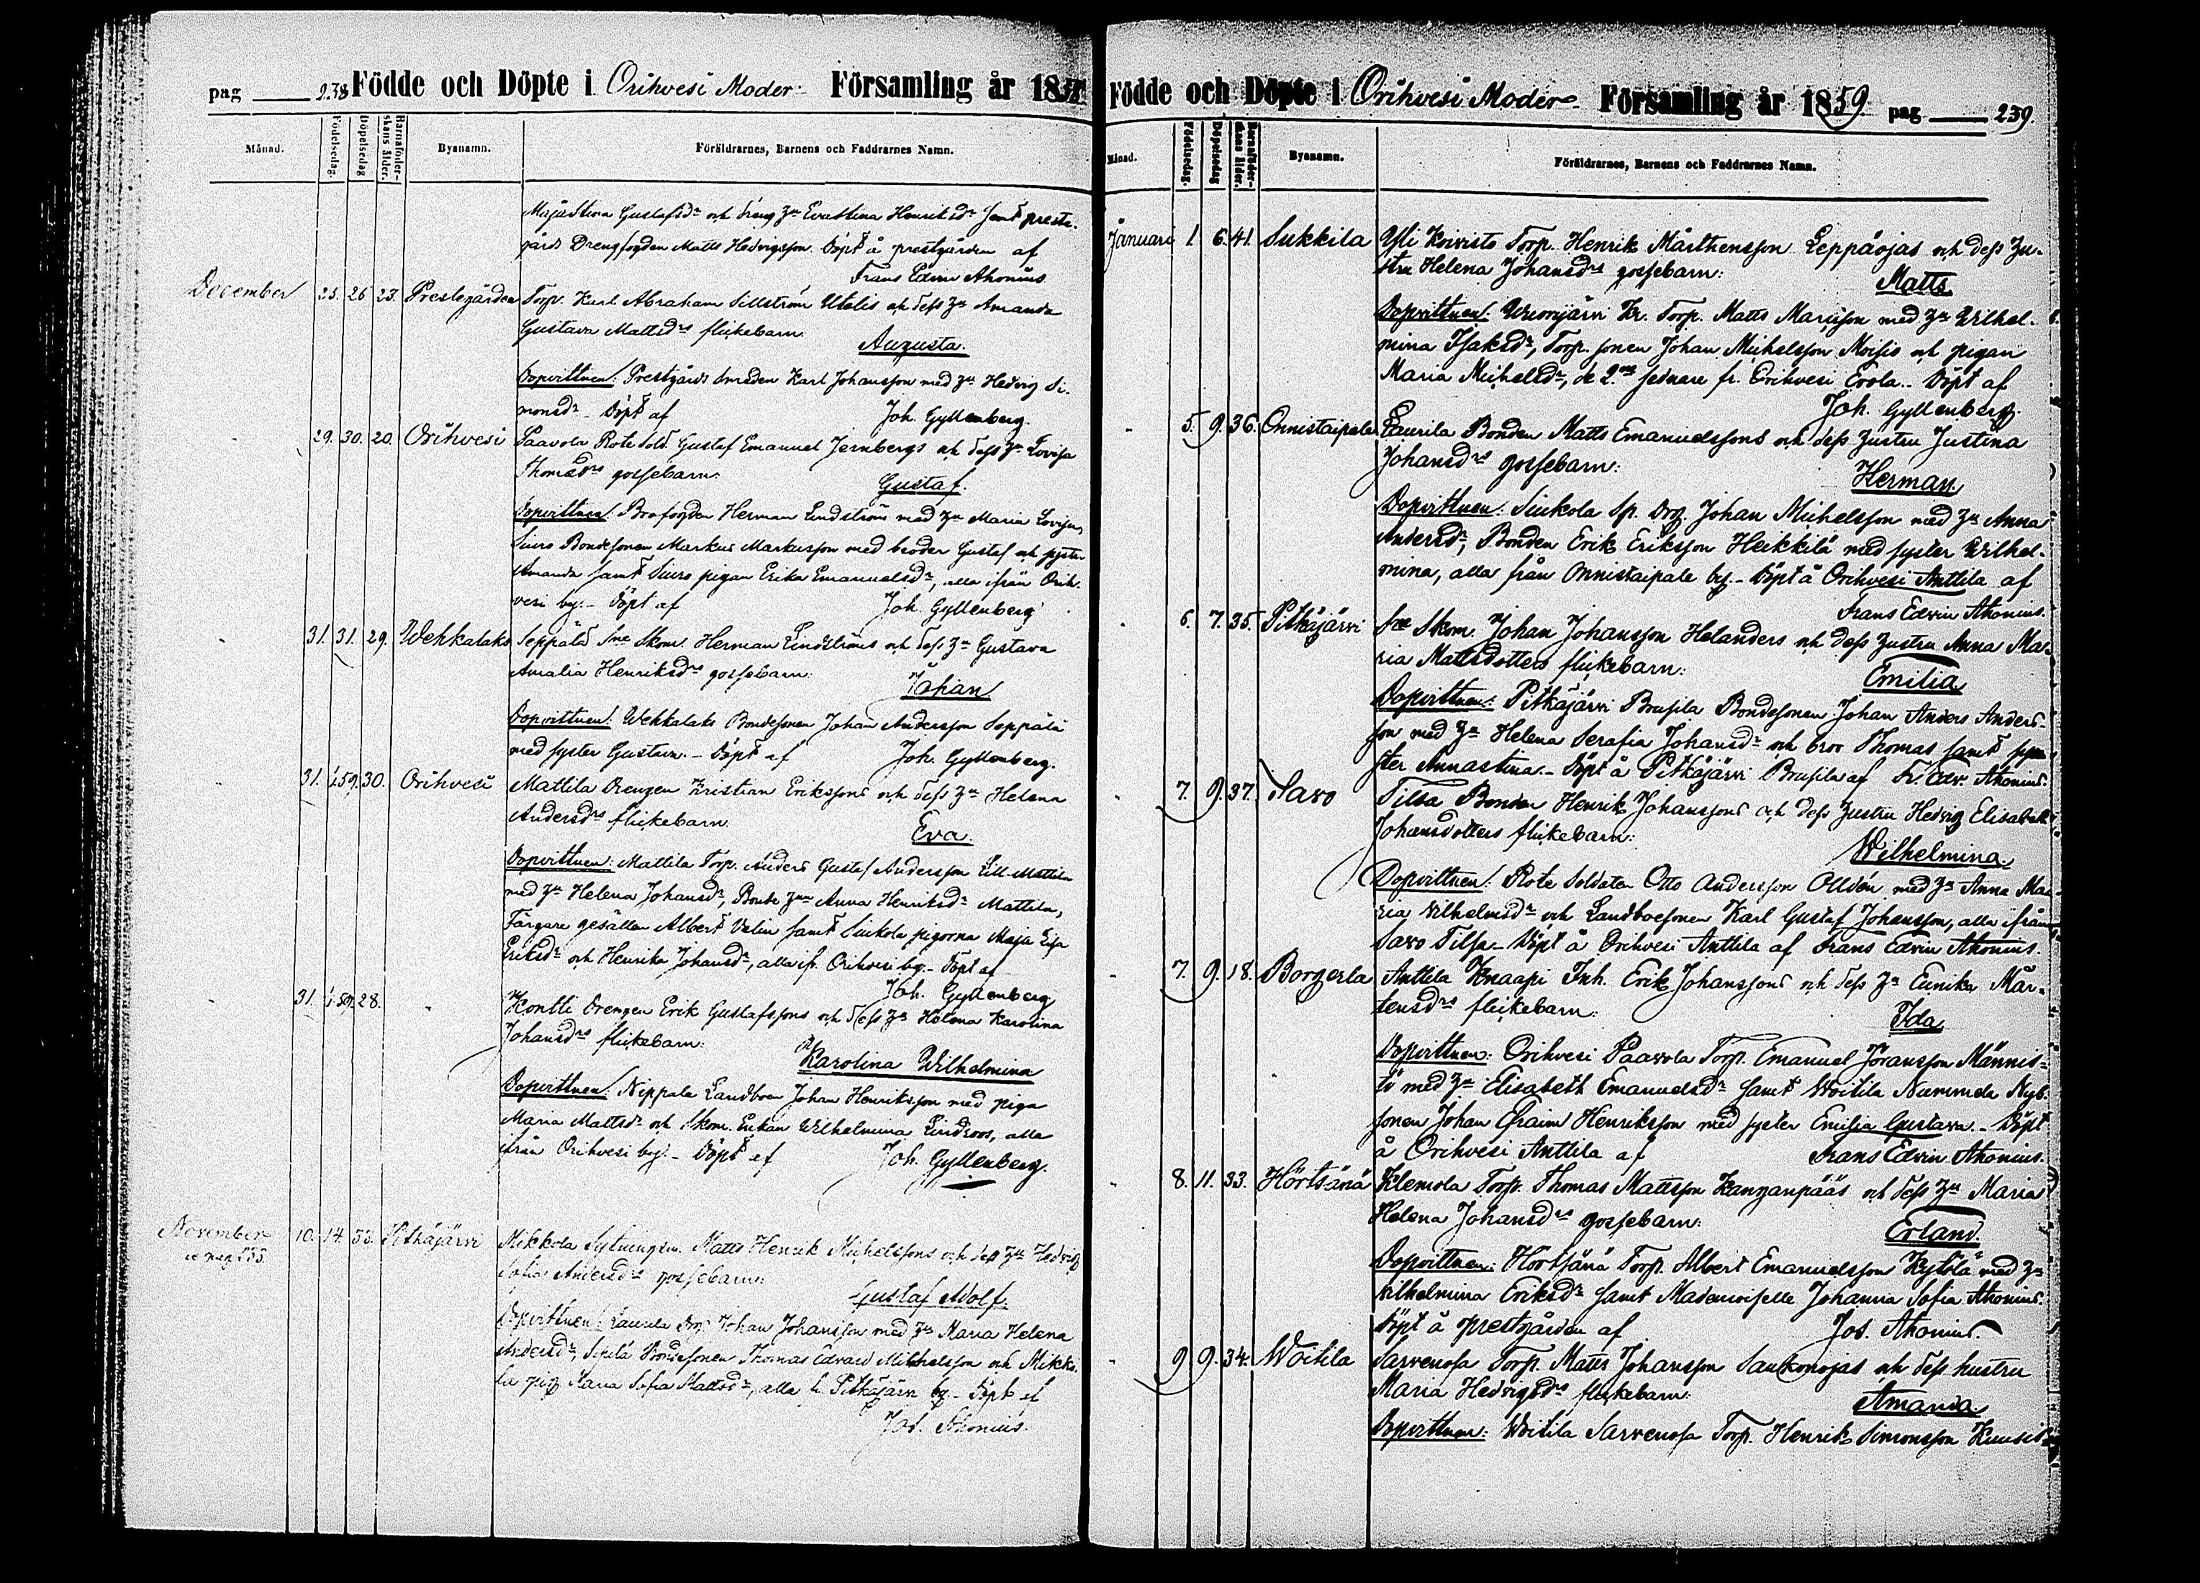 pag 238 Födde och Döpte i Orihvesi Moder Församling år 1858
Månad. Födelsedag. Döpelsedag Barnaföderskans ålder. Byanamn. Föräldrarnes, Barnens och Faddrarnes Namn.
Maja Stina Gustafsdr och dräng Zn Evastina Henriksdr samt prest-
gårds Drengfogden Matts Hedvigsson. Döpt å prestgården af
Frans Edvin Ahonius
December 25. 26 23. Prestegården Torp. Karl Abraham Sillström Utalis och dess Zu Amanda
Gustava Mattsdrs flickebarn
Augusta.
Dopvittnen: Prestgårds Smeden Karl Johansson med Zu Hedvig Si-
monsdr - Döpt af Joh. Gyllenberg.
29. 30. 20. Orihvesi Paavola Rote Sold. Gustaf Emanuel Jernbergs och dess Zu Lovisa
Thomasdrs gossebarn. Gustaf.
Dopvittnen: Brofogden Herman Lindström med Zu Maria Lovisa,
Siuro Bondesonen Markus Markusson med broder Gustaf och syster
Amanda samt Siuro pigan Erika Emanuelsdr, alla ifrån Orih-
vesi by. - Döpt af Joh. Gyllenberg
31. 31. 29. Wehkalaks Seppälä Sne Skom. Herman Lindströms och dess Zu Gustava
Amalia Henriksdrs gossebarn: Johan
Dopvittnen: Wehkalaks Bondesonen Johan Andersson Seppälä
med syster Gustava. - Döpt af Joh. Gyllenberg.
31. 1/1 59. 30. Orihvesi Mattila Drengen Kristian Erikssons och dess Zu Helena
Andersdrs flickebarn. Eva.
Dopvittnen: Mattila Torp. Anders Gustaf Andersson Lill-Mattila
med Zu Helena Johansdr, Bonde Zun Anna Henriksdr Mattila,
Färgare gesällen Albert Valin samt Siukola pigorna Maja Lisa
Eriksdr och Henrika Johansdr, alla ifr. Orihvesi by. - Döpt af
Joh. Gyllenberg
31. 1/1 59. 28. " Kontti Drengen Erik Gustafssons och dess Zu Helena Karolina
Johansdrs flickebarn:
Karolina Wilhelmina
Dopvittnen: Nippala Landboen Johan Henriksson med piga
Maria Mattsdr och Skom. Enkan Wilhelmina Lindroos, alla
ifrån Orihvesi by. - Döpt af Joh. Gyllenberg.
November 10. 14. 33. Pitkäjärvi Mikkola Sytningsm. Matts Henrik Michelssons och dess Zu Hedvig
se pag 233.
Sofia Andersdrs gossebarn:
Gustaf Adolf.
Dopvittnen: Laurila Drg. Johan Johansson med Zu Maria Helena
Andersdr, Bondesonen Thomas Edvard Michelsson och Mikko-
la pig. Maria Sofia Mattsdr, alla fr. Pitkäjärvi by. - Döpt af
Jos. Ahonius.
Födde och Döpte i Orihvesi Moder Församling år 1859. pag 239.
Månad. Födelsedag. Döpelsedag Barnaföderskans ålder. Byanamn. Föräldrarnes, Barnens och Faddrarnes Namn.
Januari 1. 6. 41. Sukkila Yli Koivisto Torp. Henrik Mårthensson Leppäojas och dess Zu-
stru Helena Johansdrs gossebarn: Matts
Dopvittnen: Wuorijärvi Kr. Torp. Matts Mariisson med Zu Wilhel-
mina Isaksdr, Torp. sonen Johan Michelsson Moisio och pigan
Maria Michelsdr, de 2ne sednare fr. Orihvesi Erola. - Döpt af
Joh. Gyllenberg.
5. 9. 36. Onnistaipale Laurila Bonden Matts Emanuelssons och dess Zustru Justina
Johansdrs gossebarn: Herman
Dopvittnen: Siukola Sp. Drg. Johan Michelsson med Zu Anna
Andersdr, Bonden Erik Eriksson Heikkilä med syster Wilhel-
mina, alla från Onnistaipale by. - Döpt å Orihvesi Anttila af
Frans Edvin Ahonius.
6. 7. 35. Pitkäjärvi Sne Skom. Johan Johansson Helanders och dess Zustru Anna Ma-
ria Mattsdotters flickebarn: Emilia
Dopvittnen: Pitkäjärvi Brusila Bondesonen Johan Anders Anders-
son med Zu Helena Serafia Johansdr och bror Thomas samt sy-
ster Annastina. - Döpt å Pitkäjärvi Brusila af Fr. Edv. Ahonius.
7. 9. 37. Savo Tilsa Bonden Henrik Johanssons och dess Zustru Hedvig Elisabeth
Johansdotters flickebarn: Wilhelmina.
Dopvittnen: Rote Soldaten Otto Andersson Olldén med Zu Anna Ma-
ria Vilhelmsdr och Landboesonen Karl Gustaf Johansson, alla ifrån
Savo Tilsa. - Döpt å Orihvesi Anttila af Frans Edvin Ahonius.
7. 9. 18. Borgerla Anttila Knaapi Inh. Erik Johanssons och dess Zu Eunika Mår-
tensdrs flickebarn: Ida
Dopvittnen: Orihvesi Paavola Torp. Emanuel Joransson Männis-
tö med Zu Elisabeth Emanuelsdr samt Woitila Nummela Nyb.
sonen Johan Efraim Henriksson med syster Emilia Gustava. - Döpt
å Orihvesi Anttila af Frans Edvin Ahonius.
8. 11. 33. Hörtsänä Klemola Torp. Thomas Mattsson Kanganpääs och dess Zu Maria
Helena Johansdrs gossebarn: Erland.
Dopvittnen: Hörtsänä Torp. Albert Emanuelsson Kytölä med Zu
Vilhelmina Eriksdr samt Mademoiselle Johanna Sofia Ahonius.
Döpt å prestgården af Jos. Ahonius.
9. 9. 34. Woitila Sarvenofa Torp. Matts Johansson Saukonojas och dess hustru
Maria Hedvigsdrs flickebarn: Amanda.
Dopvittnen: Woitila Sarvenofa Torp. Henrik Simonsson